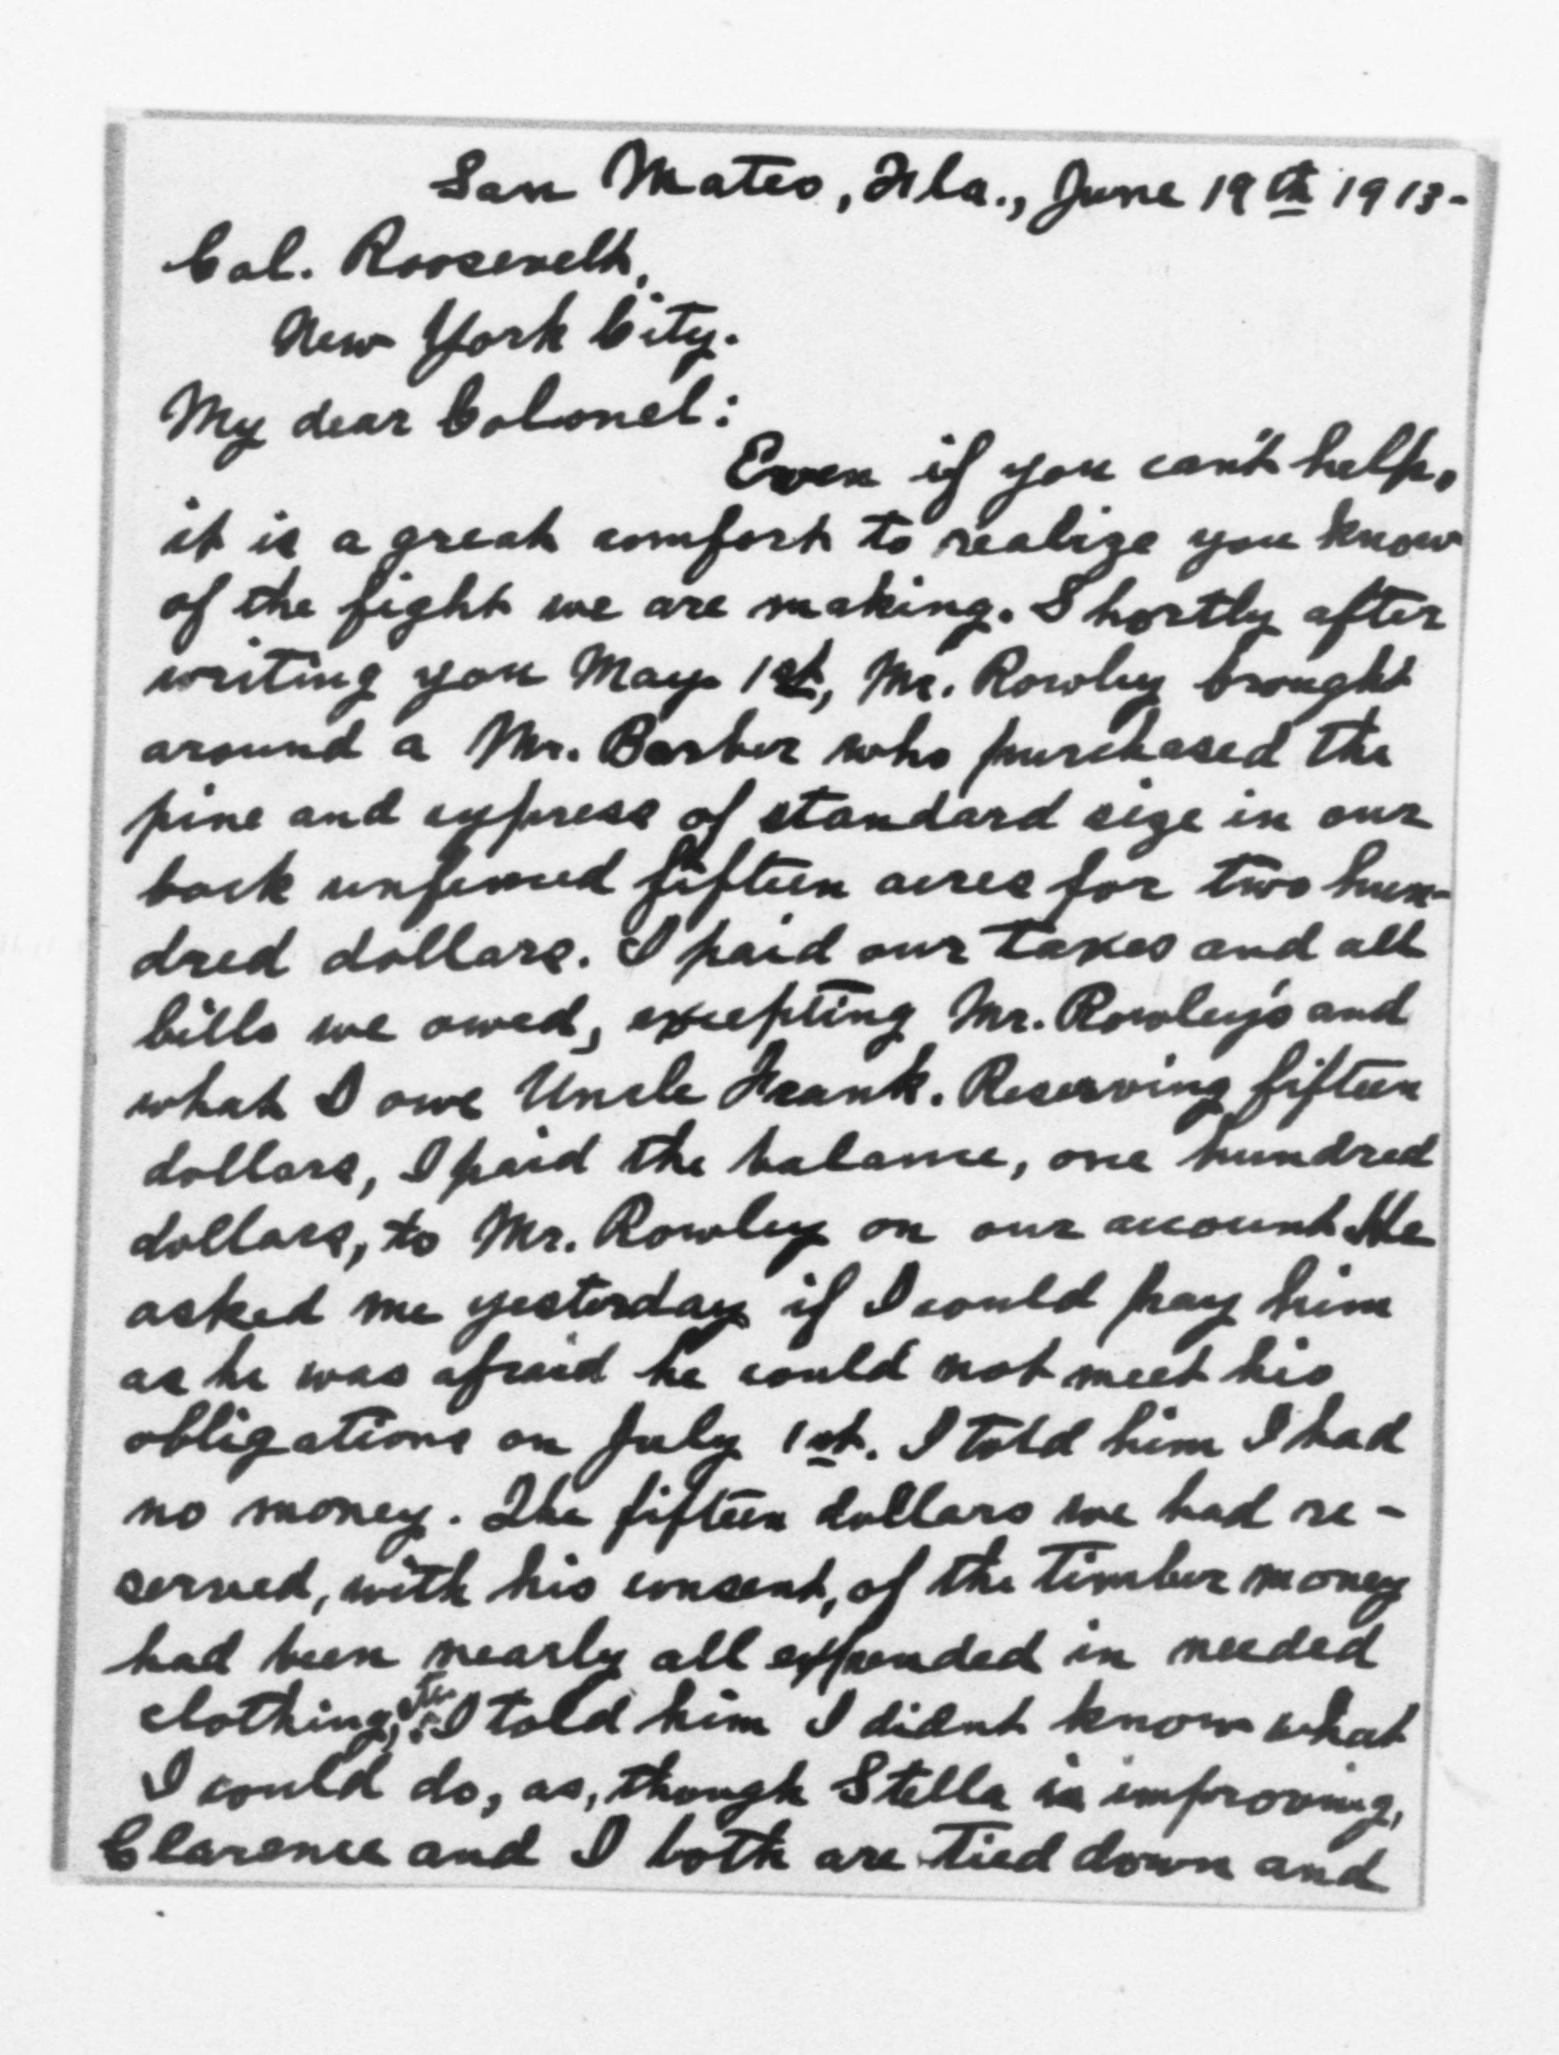 San Mateo, Fla., June 19th 1913-
Col. Roosevelt,
New York City.
My dear Colonel:
Even if you can't help,
it is a great comfort to realize you know
of the fight we are making. Shortly after
writing you May 1st, Mr. Rowley brought
around a Mr. Barber who purchased the
pine and cypress of standard size in our
back unfenced fifteen acres for two hun-
dred dollars. I paid our taxes and all
bills we owed, excepting Mr. Rowley's and
what I owe Uncle Frank. Reserving fifteen
dollars, I paid the balance, one hundred
dollars, to Mr. Rowley on our account. He
asked me yesterday if I could pay him
as he was afraid he could not meet his
obligations on July 1st. I told him I had
no money. The fifteen dollars we had re-
served, with his consent, of the timber money
had been nearly all expended in needed
clothing, etc. I told him I didnt know what
I could do, as, though Stella is improving,
Clarence and I both are tied down and